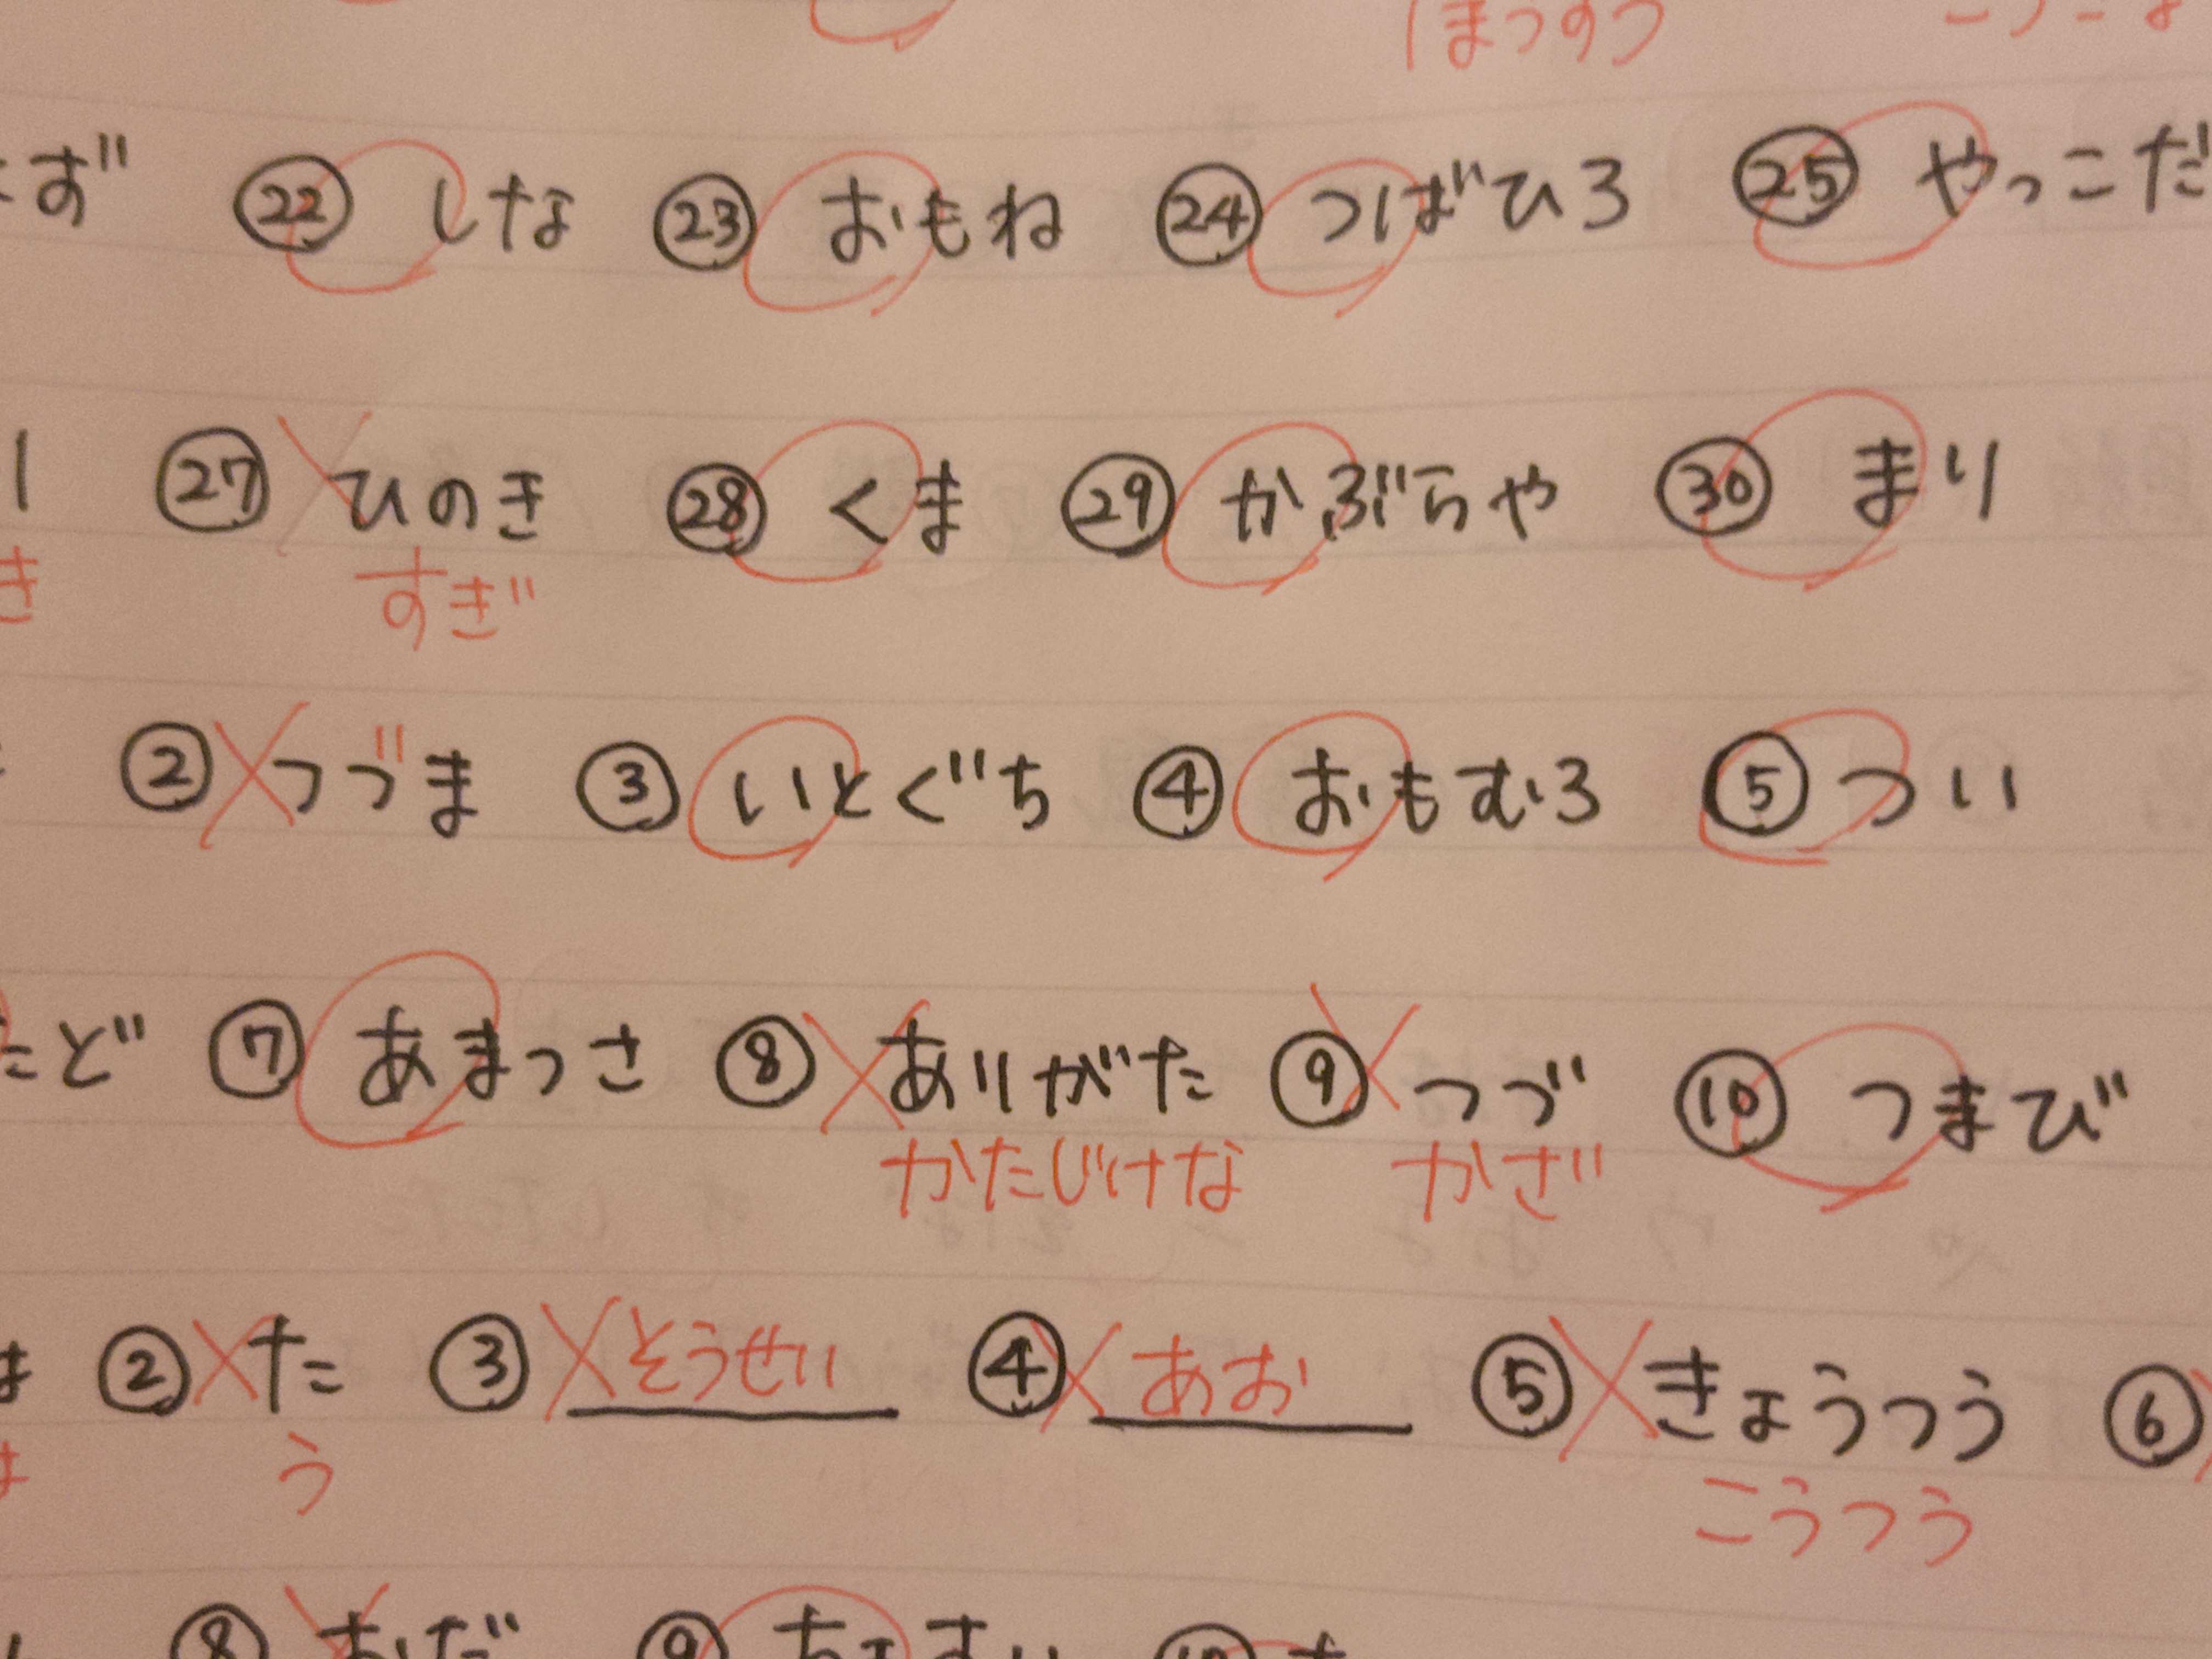 ほまつのう
ず ㉒ しな ㉓ おもね ㉔ つばひろ ㉕ やっこだ
㉗ ひのき ㉘ くま ㉙ かぶらや ㉚ まり
き すぎ
② つづま ③ いとぐち ④ おもむろ ⑤ つい
ど ⑦ あまつさ ⑧ ありがた ⑨ つづ ⑩ つまび
かたじけな かざ
② た ③ そうせい ④ あお ⑤ きょうつう ⑥
う こうつう
⑧ おだ ⑨ ⑩